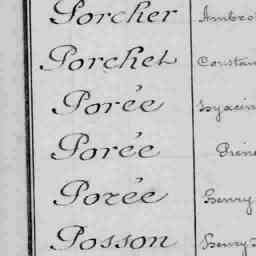 Porcher Ambro
Porchet Constan
Porée Hyacin
Porée
Porée Henry
Posson Henry